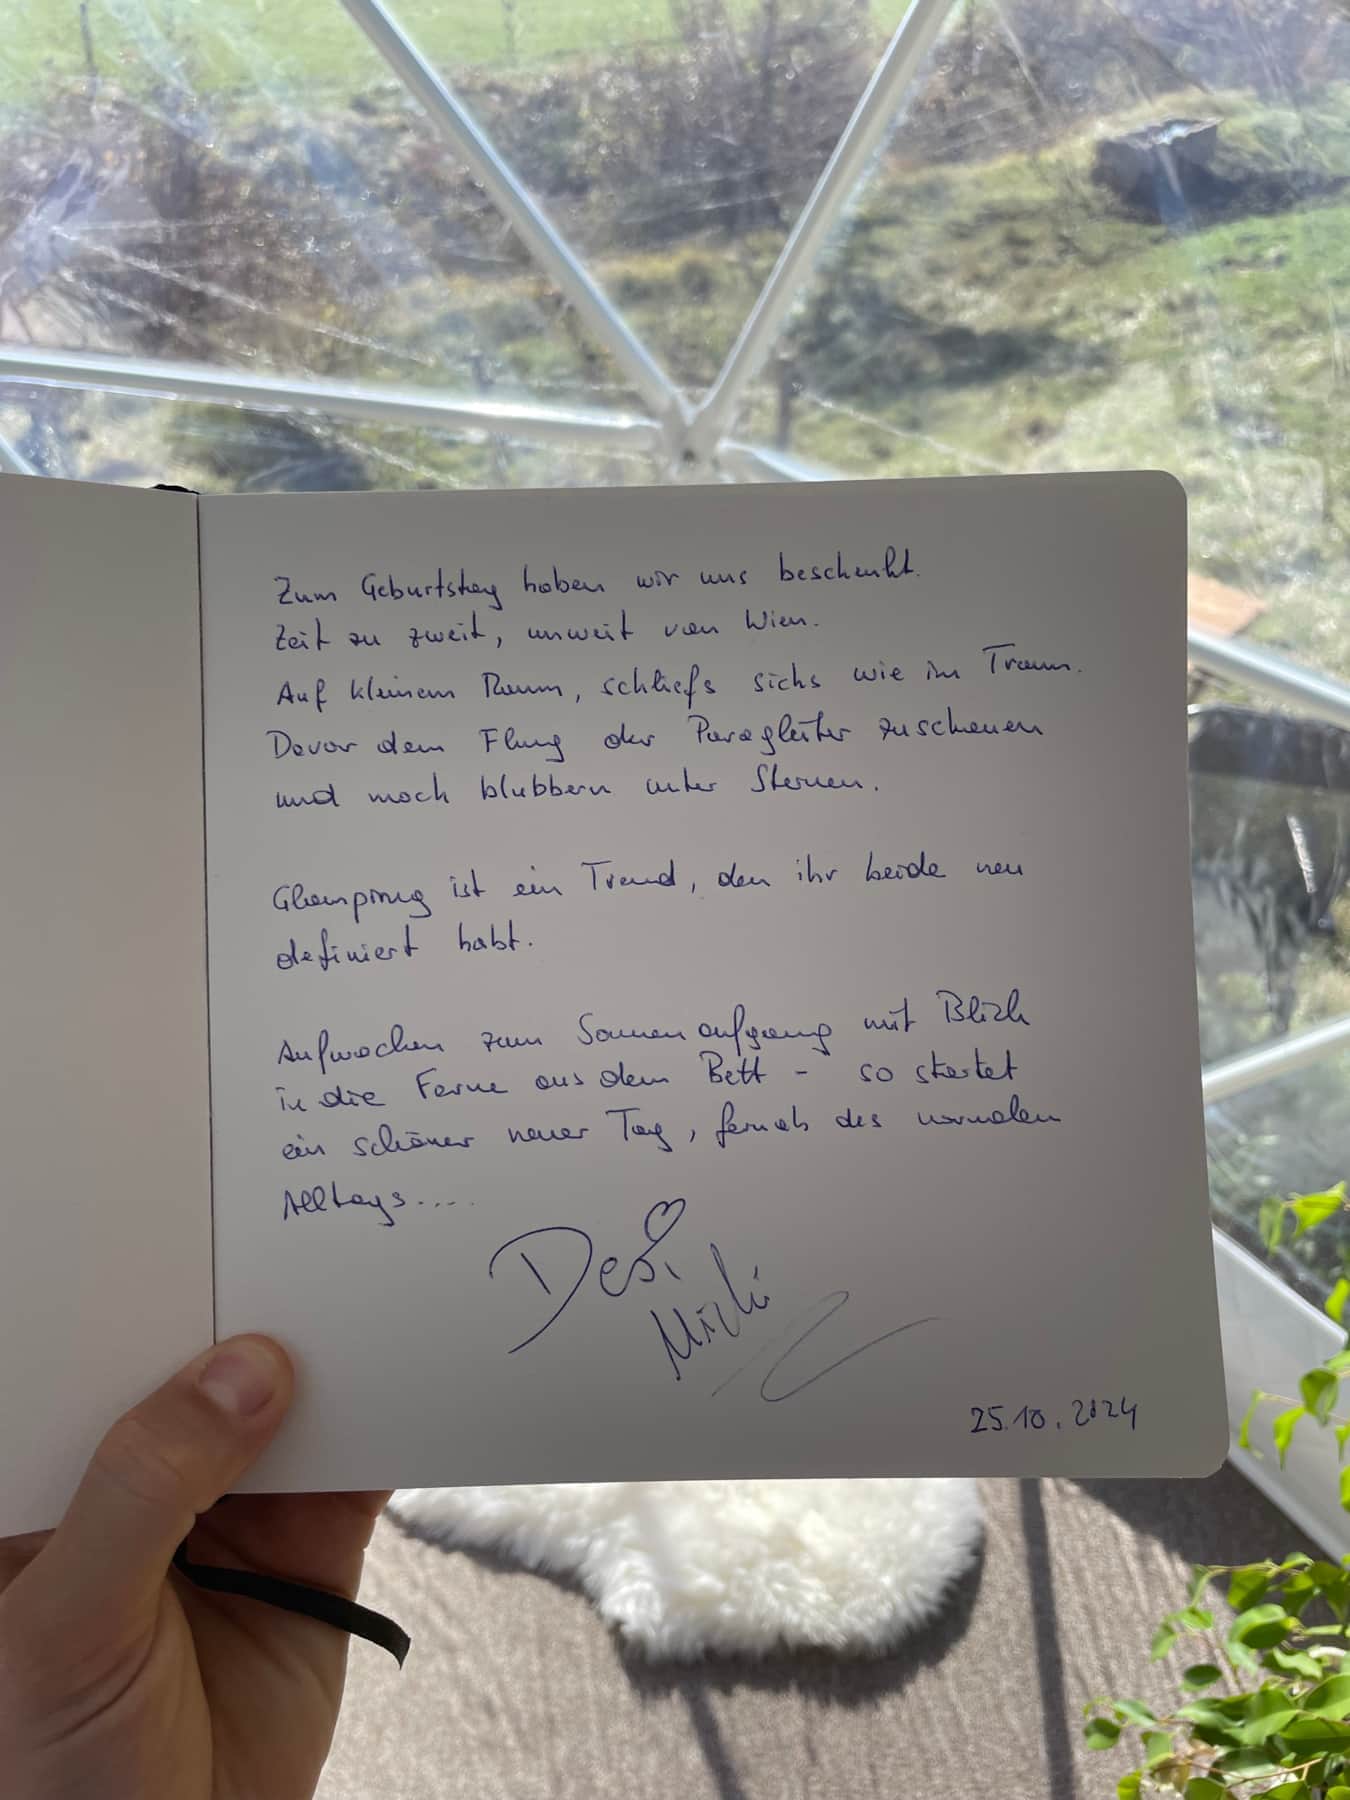 Zum Geburtstag haben wir uns beschenkt.
Zeit zu zweit, unweit von Wien.
Auf kleinem Raum, schliefs sichs wie im Traum.
Davor dem Flug der Paragleiter zuschauen
und noch blubbern unter Sternen.
Glamping ist ein Trend, den ihr beide neu
definiert habt.
Aufwachen zum Sonnenaufgang mit Blick
in die Ferne aus dem Bett - so startet
ein schöner neuer Tag, fernab des normalen
Alltags....
Desi
Michi
25.10.2024